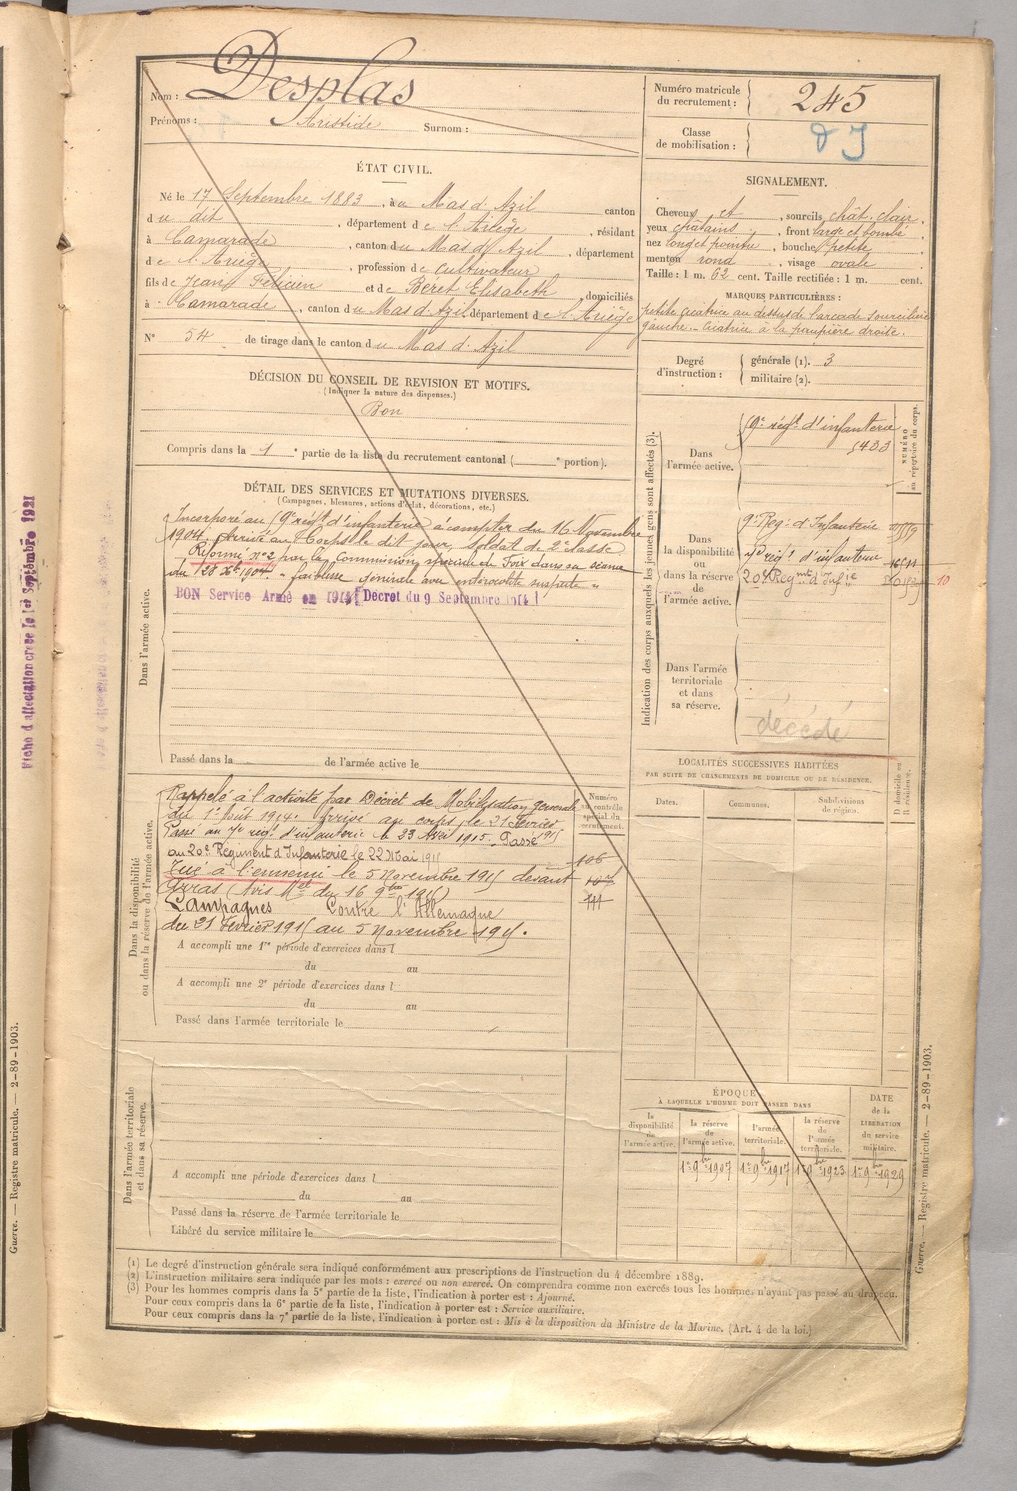 Nom : Desplas
Prénoms : Aristide Surnom :
Numéro matricule
du recrutement : 245
Classe
de mobilisation :
ÉTAT CIVIL.
Né le 17 Septembre 1883, à u Mas d'Azil canton
d u dit, département d e l'Ariège, résidant
à Camarade, canton d u Mas d'Azil, département
d e l'Ariège, profession d e cultivateur
fils de Jean Félicien et de Beret Elisabeth, domiciliés
à Camarade, canton d u Mas d'Azil département d e l'Ariège
N° 54 de tirage dans le canton d u Mas d'Azil
SIGNALEMENT.
Cheveux et, sourcils chât. clair
yeux châtains, front large et bombé
nez long et pointu, bouche petite
menton rond, visage ovale
Taille : 1 m. 62 cent. Taille rectifiée : 1 m. cent.
MARQUES PARTICULIÈRES :
petite cicatrice au dessus de l'arcade sourcilière
gauche. Cicatrice à la paupière droite.
Degré
d'instruction :
générale (1). 3
militaire (2).
DÉCISION DU CONSEIL DE REVISION ET MOTIFS.
(Indiquer la nature des dispenses.)
Bon
Compris dans la 1e partie de la liste du recrutement cantonal ( e portion).
DÉTAIL DES SERVICES ET MUTATIONS DIVERSES.
(Campagnes, blessures, actions d'éclat, décorations, etc.)
Dans l'armée active.
Incorporé au 9e régt d'infanterie à compter du 16 Novembre
1904. Arrivé au Corps le dit jour, soldat de 2e classe
Réformé n° 2 par la Commission spéciale de Foix dans sa séance
du 20 Xbre 1904. "faiblesse générale avec entérocolite suspecte"
BON Service Armé en 1914 (Décret du 9 Septembre 1914)
Passé dans la de l'armée active le
Indication des corps auxquels les jeunes gens sont affectés (3).
NUMÉRO
au répertoire du corps.
Dans
l'armée active.
9e régt d'infanterie
5433
Dans
la disponibilité
ou
dans la réserve
de
l'armée active.
9e Reg. d'Infanterie
7e régt d'infanterie
20e Regmt d'Infie
10
Dans l'armée
territoriale
et dans
sa réserve.
décédé
LOCALITÉS SUCCESSIVES HABITÉES
PAR SUITE DE CHANGEMENTS DE DOMICILE OU DE RÉSIDENCE.
Dates. Communes. Subdivisions
de région.
D domicile ou
R résidence.
Dans la disponibilité
ou dans la réserve de l'armée active.
Numéro
au contrôle
spécial du
recrutement.
Rappelé à l'activité par Décret de Mobilisation générale
du 1er Août 1914. Arrivé au corps le 21 Février
1915
Passé au 7e régt d'infanterie le 23 Avril 1915. Passé
au 20e Régiment d'Infanterie le 22 Mai 1915
Tué à l'ennemi le 5 Novembre 1915 devant
Arras (Avis Mel du 16 9bre 1915)
Campagnes Contre l'Allemagne
du 21 Février 1915 au 5 Novembre 1915.
A accompli une 1re période d'exercices dans l
du au
A accompli une 2e période d'exercices dans l
du au
Passé dans l'armée territoriale le
Dans l'armée territoriale
et dans sa réserve.
A accompli une période d'exercices dans l
du au
Passé dans la réserve de l'armée territoriale le
Libéré du service militaire le
ÉPOQUE
À LAQUELLE L'HOMME DOIT PASSER DANS
la
disponibilité
de
l'armée active.
la réserve
de
l'armée active.
l'armée
territoriale.
la réserve
de
l'armée
territoriale.
DATE
de la
LIBÉRATION
du service
militaire.
1er 9bre 1907 1er 9bre 1917 1er 9bre 1923 1er 9bre 1929
(1) Le degré d'instruction générale sera indiqué conformément aux prescriptions de l'instruction du 4 décembre 1889.
(2) L'instruction militaire sera indiquée par les mots : exercé ou non exercé. On comprendra comme non exercés tous les hommes n'ayant pas passé au drapeau.
(3) Pour les hommes compris dans la 5e partie de la liste, l'indication à porter est : Ajourné.
Pour ceux compris dans la 6e partie de la liste, l'indication à porter est : Service auxiliaire.
Pour ceux compris dans la 7e partie de la liste, l'indication à porter est : Mis à la disposition du Ministre de la Marine. (Art. 4 de la loi.)
Fiche d'affectation créée le 1er Septembre 1921
Guerre. — Registre matricule. — 2-89-1903.
Guerre. — Registre matricule. — 2-89-1903.